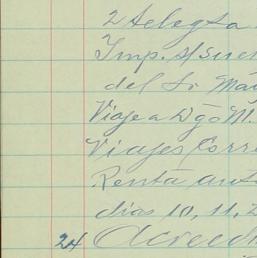 2 telegta
Imp. s/ suel
del Sr. Ma
Viaje a Dgo M.
Viajes Corre
Renta auto
dias 10, 11, 2
24 Acreed